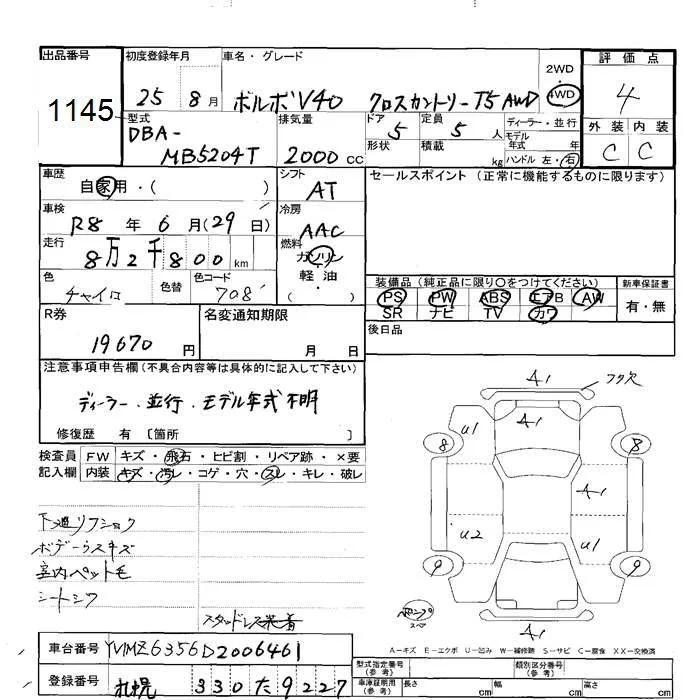 出品番号
1145
初度登録年月
25 8月
車名・グレード
ボルボV40 クロスカントリーT5 AWD
2WD
4WD
評価点
4
外装 内装
C C
型式
DBA-
MB5204T
排気量
2000 CC
ドア
5
定員
5 人
形状
積載
kg
ディーラー・並行
モデル
年式 年
ハンドル 左・右
車歴
自家用・( )
シフト
AT
セールスポイント (正常に機能するものに限ります)
車検
R8年6月(29日)
冷房
AAC
走行
8万2千800km
燃料
ガソリン
軽油
( )
色
チャイロ
色替
色コード
708
装備品(純正品に限り○をつけてください)
PS PW ABS エアB AW
SR ナビ TV カワ
新車保証書
有・無
R券
19670円
名変通知期限
月 日
後日品
注意事項申告欄(不具合内容等は具体的に記入して下さい)
ディーラー、並行、モデル年式不明
修復歴 有 〔箇所 〕
検査員
記入欄
FW キズ・飛石・ヒビ割・リペア跡・×要
内装 キズ・汚レ・コゲ・穴・スレ・キレ・破レ
下廻リフショク
ボデーウスキズ
室内ペット毛
シートシワ
スタッドレス装着
A1
フタ欠
A1
U1
8 8
A1
U2 U1
9 9
パンプ
スペア
A1
A-キズ E-エクボ U-凹み W-補修跡 S-サビ C-腐食 XX-交換済
車台番号
YV1MZ6356D2006461
登録番号
札幌 330 た 9227
型式指定番号
(参考)
類別区分番号
(参考)
車庫証明用
(参考)
長さ cm 幅 cm 高さ cm